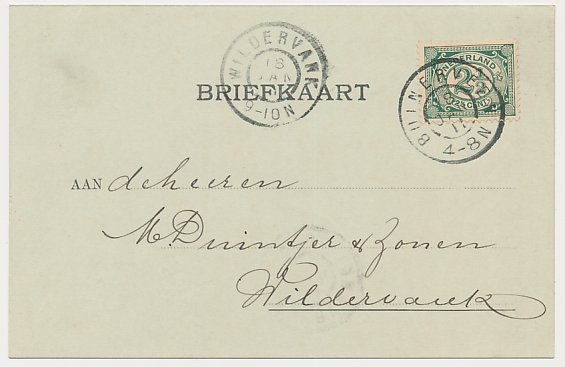 WILDERVANK
18
JAN
9-10N
BRIEFKAART
NEDERLAND
2½
2½ CENT
BUINER
4-8N
AAN de heeren
M. Duintjer & Zonen
Wildervanck